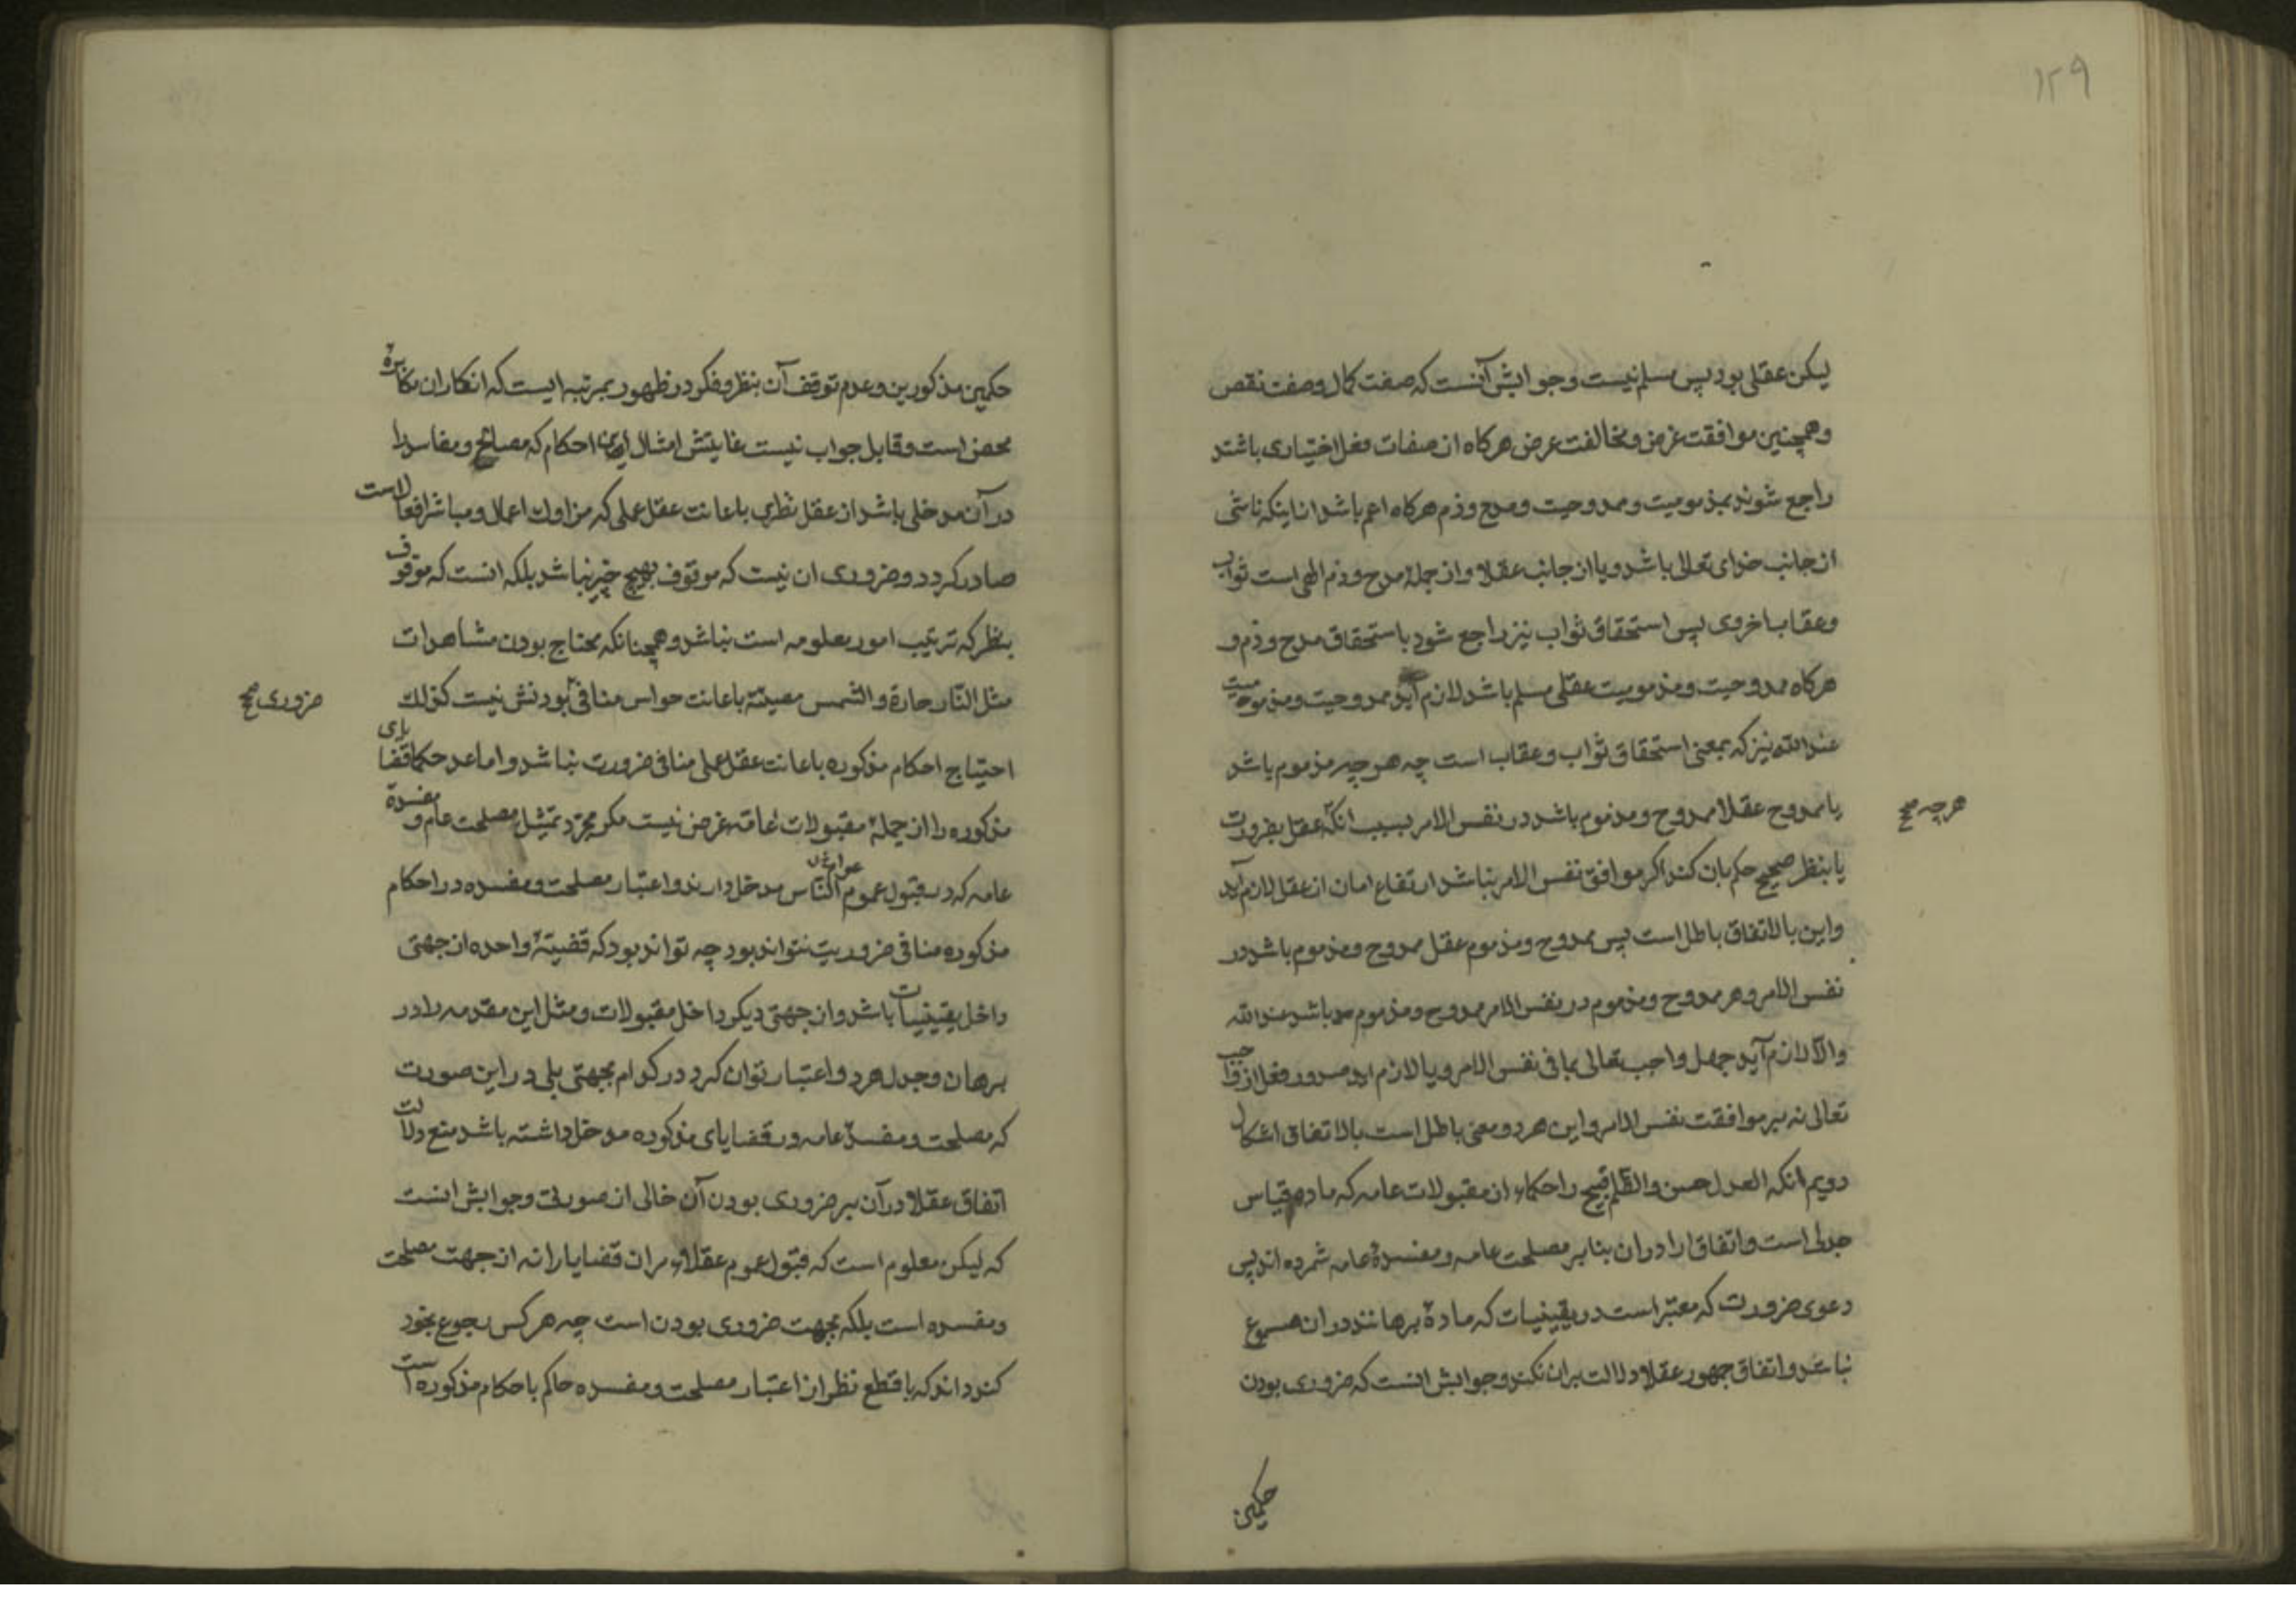 ۱۲۹
لیکن عقلی بود پس مسلم نیست و جوابش آنست که صفت کمال و صفت نقص
و همچنین موافقت غرض و مخالفت غرض هرکاه از صفات فعل اختیاری باشند
راجع شوند بمذمومیت و ممدوحیت و مدح و ذم هرکاه اعم باشد از اینکه ناشی
از جانب خدای تعالی باشد و یا از جانب عقلا و از جملهٔ مدح و ذم الهی است ثواب
و عقاب اخروی پس استحقاق ثواب نیز راجع شود باستحقاق مدح و ذم و
هرکاه ممدوحیت و مذمومیت عقلی مسلم باشد لازم آید ممدوحیت و مذمومیت
عند الله نیز که بمعنی استحقاق ثواب و عقاب است چه هر چه مذموم باشد
یا ممدوح عقلا ممدوح و مذموم باشد در نفس الامر بسبب انکه عقل بضرورت
هر چه صح
یا بنظر صحیح حکم بان کند اکر موافق نفس الامر نباشد ارتفاع امان از عقل لازم آید
و این بالاتفاق باطل است پس ممدوح و مذموم عقل ممدوح و مذموم باشد در
نفس الامر و هر ممدوح و مذموم در نفس الامر ممدوح و مذموم باشد عند الله
و الا لازم آید جهل واجب تعالی بما فی نفس الامر و یا لازم اید صدور فعل از واجب
تعالی نه بر موافقت نفس الامر و این هر دو معنی باطل است بالاتفاق اشکال
دویم انکه العدل حسن و الظلم قبیح را حکماء از مقبولات عامه که ماده قیاس
جدلی است و اتفاق ارا در ان بنابر مصلحت عامه و مفسدهٔ عامه شمرده اند پس
دعوی ضرورت که معتبر است در یقینیات که مادهٔ برهانند در ان مسموع
نباشد و اتفاق جمهور عقلا دلالت بران نکند و جوابش انست که ضروری بودن
حکمین
حکمین مذکورین و عدم توقف آن بنظر و فکر در ظهور بمرتبه ایست که انکار ان مکابرهٔ
محض است و قابل جواب نیست غایتش امثال این احکام که مصالح و مفاسد را
در آن مدخلی باشد از عقل نظری باعانت عقل عملی که مزاول اعمال و مباشر افعالاست
صادر کردد و ضروری ان نیست که موقوف بهیچ چیز نباشد بلکه انست که موقوف
بنظر که ترتیب امور معلومه است نباشد و همچنانکه محتاج بودن مشاهدات
مثل النّار حارة و الشمس مضیئة باعانت حواس منافی بودنش نیست کذلك
ضروری صح
احتیاج احکام مذکوره باعانت عقل عملی منافی ضرورت نباشد و اما عد حکما قضایای
مذکوره را از جملهٔ مقبولات عامّه غرض نیست مکر مجرّد تمثیل مصلحت عام و مفسدهٔ
عامه که در قبول عموم النّاس مدخل دارند و اعتبار مصلحت و مفسده در احکام
مذکوره منافی ضروریت نتواند بود چه تواند بود که قضیهٔ واحده از جهتی
داخل یقینیات باشد و از جهتی دیکر داخل مقبولات و مثل این مقدمه را در
برهان و جدل هر دو اعتبار توان کرد در کدام بجهتی بلی در این صورت
که مصلحت و مفسدهٔ عامه در قضایای مذکوره مدخل داشته باشد منع دلالت
اتفاق عقلا در آن بر ضروری بودن آن خالی از صورتی و جوابش انست
که لیکن معلوم است که قبول عموم عقلاء مران قضایا را نه از جهت مصلحت
و مفسده است بلکه بجهت ضروری بودن است چه هر کس رجوع بخود
کند داند که با قطع نظر از اعتبار مصلحت و مفسده حاکم باحکام مذکوره است